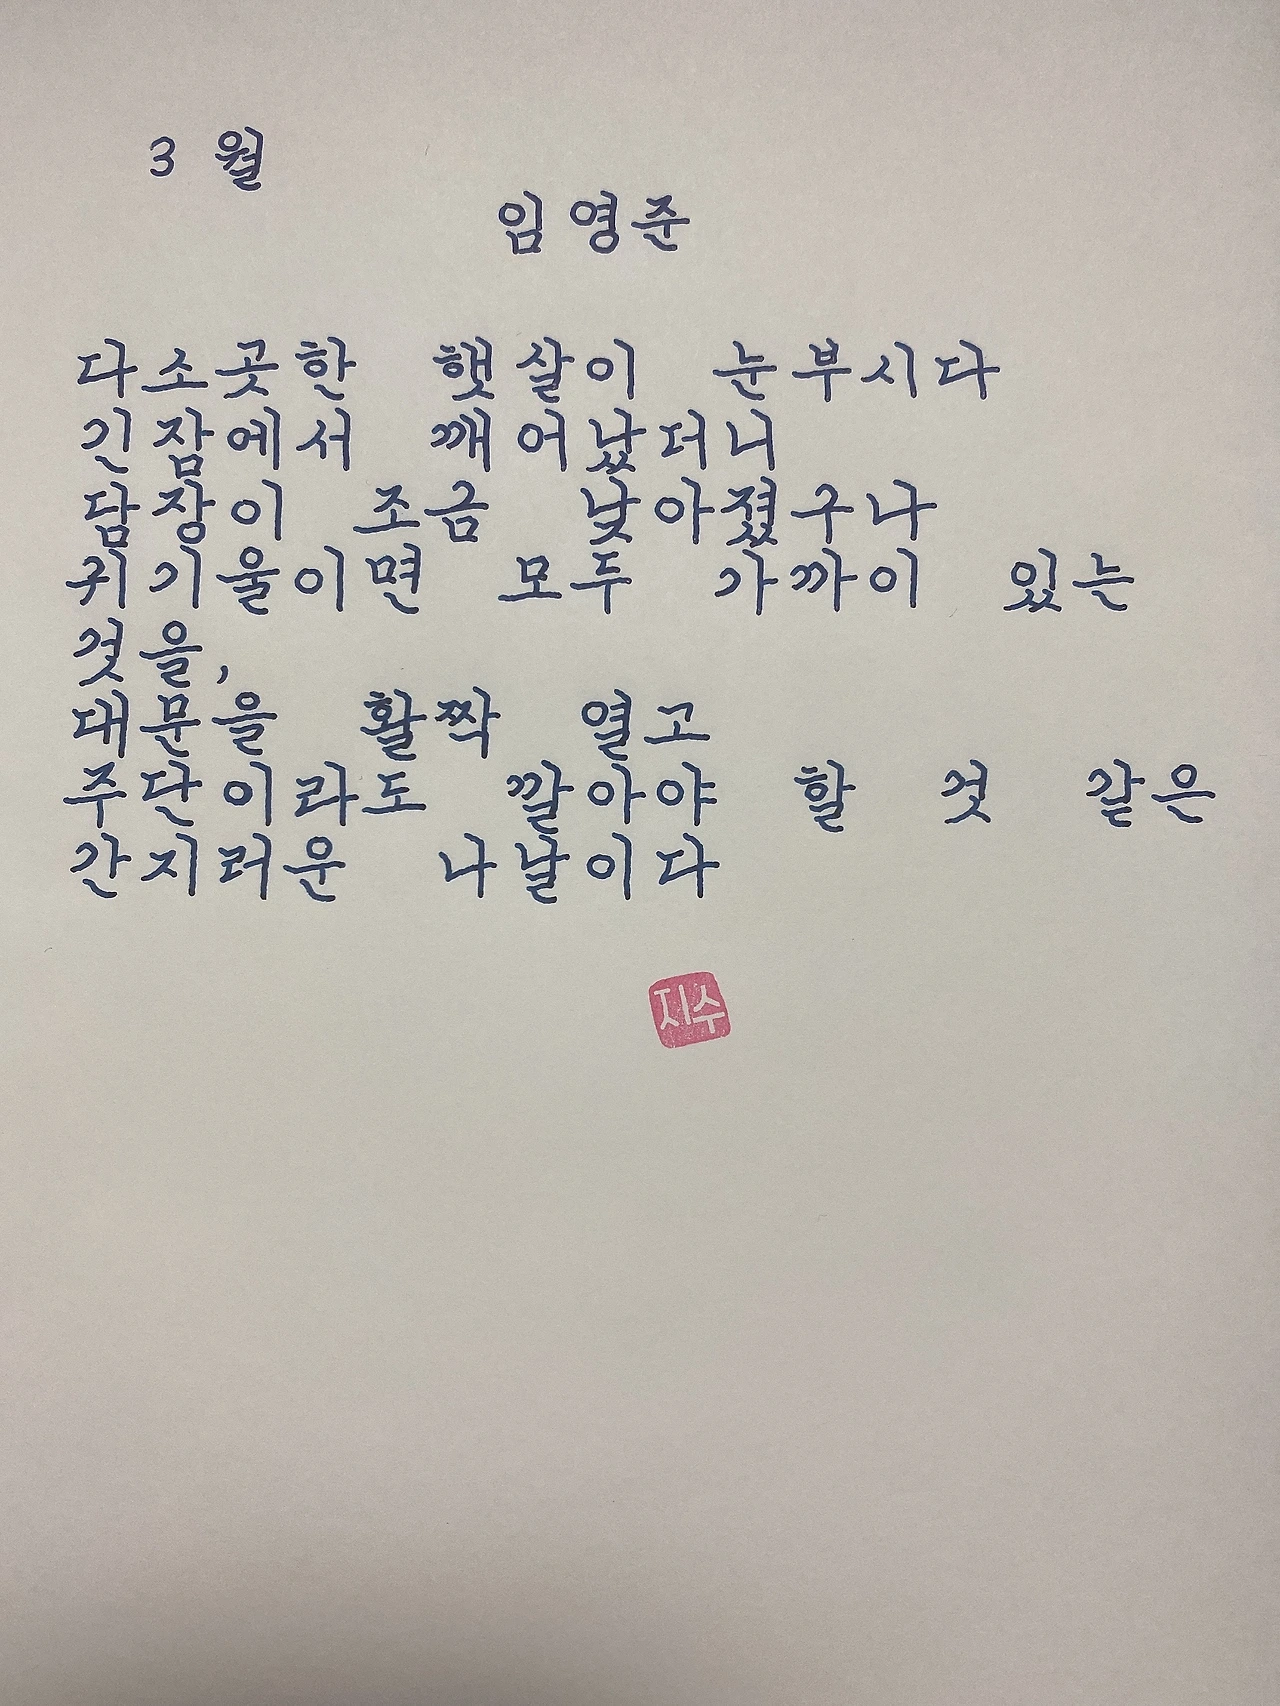 3 월
임영준
다소곳한 햇살이 눈부시다
긴잠에서 깨어났더니
담장이 조금 낮아졌구나
귀기울이면 모두 가까이 있는
것을,
대문을 활짝 열고
주단이라도 깔아야 할 것 같은
간지러운 나날이다
지수